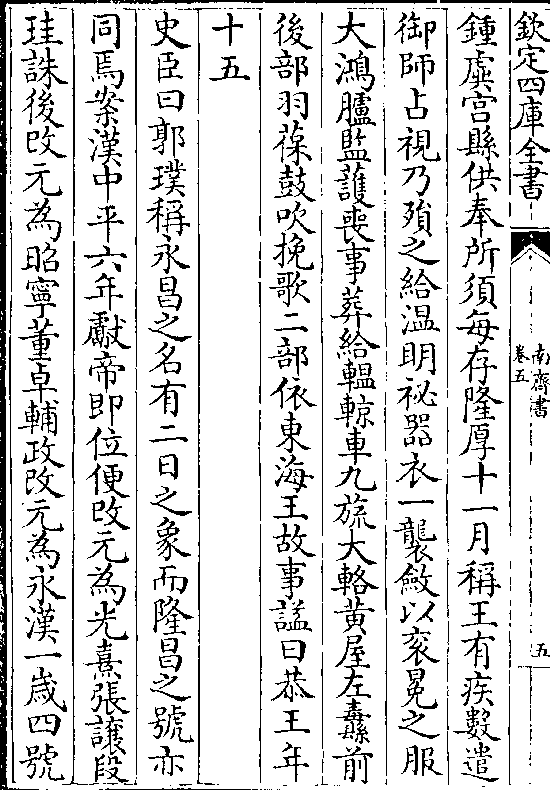 欽定四庫全書
南齊書
卷五
五
鍾虡宮縣供奉所須每存隆厚十一月稱王有疾數遣
御師占視乃殞之給温明祕器衣一襲斂以衮冕之服
大鴻臚監護喪事葬給轀輬車九旒大輅黄屋左纛前
後部羽葆鼓吹挽歌二部依東海王故事諡曰恭王年
十五
史臣曰郭璞稱永昌之名有二日之象而隆昌之號亦
同焉案漢中平六年獻帝即位便改元為光熹張讓段
珪誅後改元為昭寧董卓輔政改元為永漢一歲四號